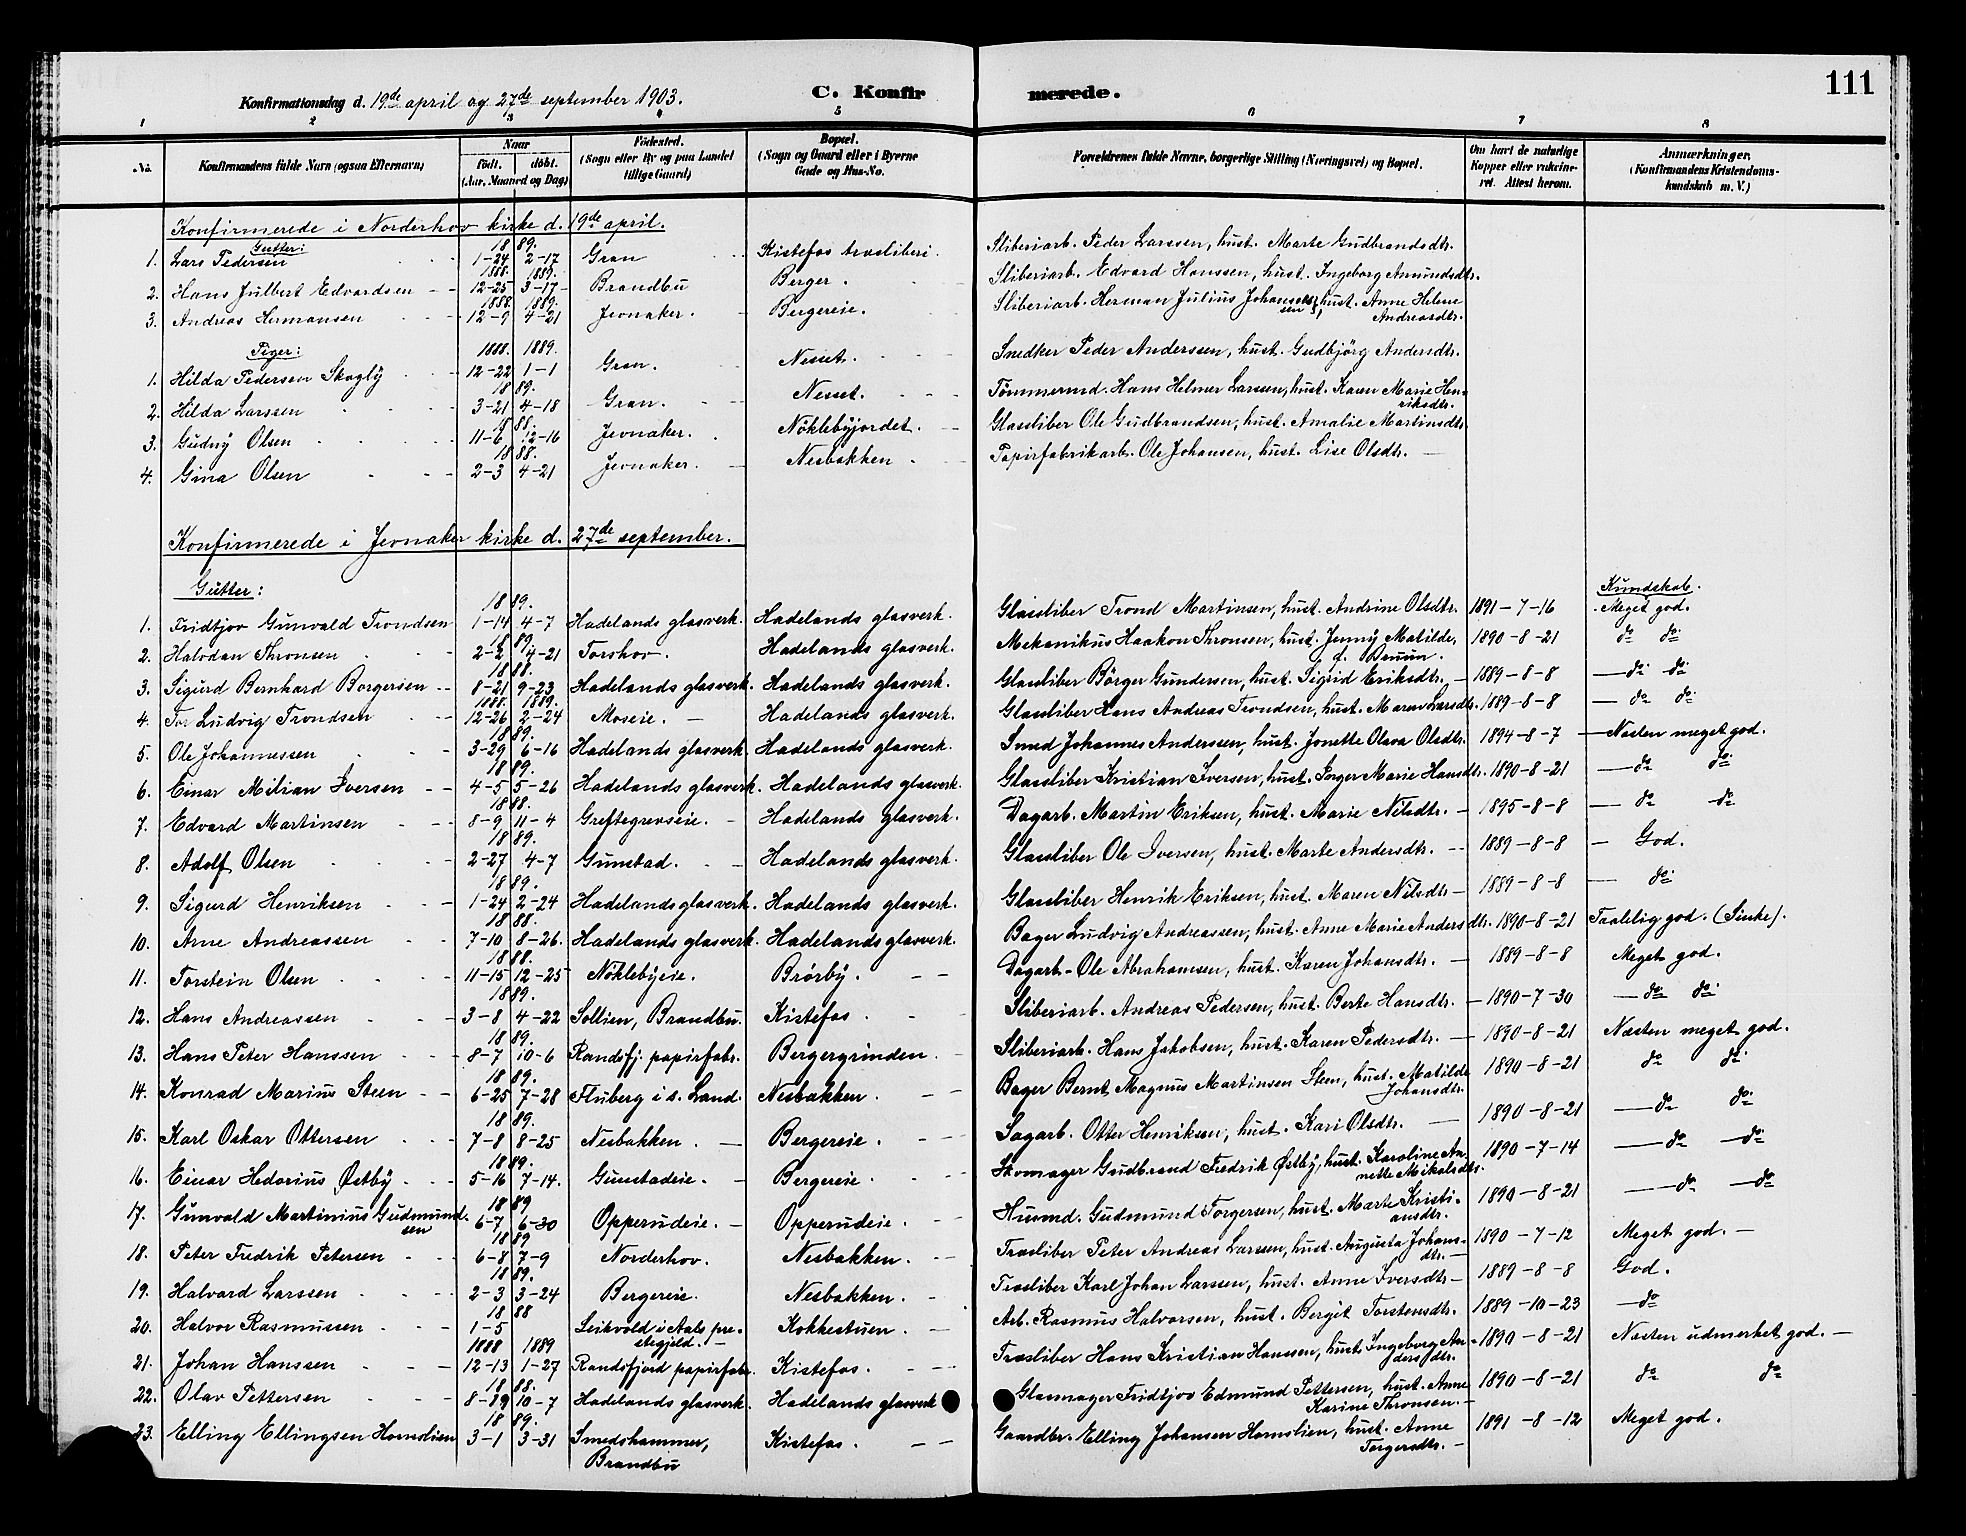 111
Konfirmationsdag d. 19de april og 27de september 1903. C. Konfirmerede.
1 2 3 4 5 6 7 8
No. Konfirmandens fulde Navn (ogsaa Efternavn) Naar født. døbt. (Aar, Maaned og Dag) Fødested. (Sogn eller By og paa Landet tillige Gaard) Bopæl. (Sogn og Gaard eller i Byerne Gade og Hus-No. Forældrenes fulde Navne, borgerlige Stilling (Næringsvei) og Bopæl. Om havt de naturlige Kopper eller vakcineret. Attest herom. Anmærkninger. (Konfirmandens Kristendomskundskab m. V.)
Konfirmerede i Norderhov kirke d. 19de april.
Gutter:
1. Lars Pedersen 1889. 1-24 2-17 Gran Kistefos træsliberi. Sliberiarb. Peder Larssen, hust. Marte Gudbrandsdtr.
2. Hans Julbert Edvardsen 1888. 1889. 12-25 3-17 Brandbu Berger. Sliberiarb. Edvard Hanssen, hust. Ingeborg Amundsdtr.
3. Andreas Hermansen 1888. 1889. 12-9 4-21 Jevnaker. Bergereie. Sliberiarb. Herman Julius Johanssen, hust. Anne Helene Andreasdtr.
Piger:
1. Hilda Pedersen Skogly 1888. 1889. 12-22 1-1 Gran. Nesset. Snedker Peder Anderssen, hust. Gudbjörg Andersdtr.
2. Hilda Larssen 1889. 3-21 4-18 Gran. Nesset. Tømmermd. Hans Helmer Larssen, hust. Karen Marie Henriksdtr.
3. Gudny Olsen 1888. 11-6 12-16 Jevnaker. Nöklebyjordet. Glassliber Ole Gudbrandsen, hust. Amalie Martinsdtr.
4. Gina Olsen 1888. 2-3 4-21 Jevnaker. Nesbakken Papirfabrikarb. Ole Johansen, hust. Lise Olsdtr.
Konfirmerede i Jevnaker kirke d. 27de september.
Gutter: Kundskab.
1. Fridtjov Gunvald Trondsen 1889. 1-14 4-7 Hadelands glasverk. Hadelands glasverk. Glassliber Trond Martinsen, hust. Andrine Olsdtr. 1891-7-16 Meget god.
2. Halvdan Thronsen 1889. 2-2 4-21 Torshov. Hadelands glasverk. Mekanikus Haakon Thronsen, hust. Jenny Matilde, f. Bruun. 1890-8-21 do do
3. Sigurd Bernhard Borgersen 1888. 8-21 9-23 Hadelands glasverk. Hadelands glasverk. Glassliber Børger Gundersen, hust. Sigrid Eriksdtr. 1889-8-8 do do
4. Tor Ludvig Trondsen 1888. 1889. 12-26 2-24 Moseie. Hadelands glasverk. Glassliber Hans Andreas Trondsen, hust. Maren Larsdtr. 1889-8-8 do do
5. Ole Johannessen 1889. 3-29 6-16 Hadelands glasverk. Hadelands glasverk. Smed Johannes Anderssen, hust. Jonette Olava Olsdtr. 1894-8-7 Næsten meget god.
6. Einar Milian Iversen 1889. 4-5 5-26 Hadelands glasverk. Hadelands glasverk. Glassliber Kristian Iversen, hust. Inger Marie Hansdtr. 1890-8-21 do do
7. Edvard Martinsen 1888. 8-9 11-4 Greftegrevseie. Hadelands glasverk. Dagarb. Martin Eriksen, hust. Marie Nilsdtr. 1895-8-8 do do
8. Adolf Olsen 1889. 2-27 4-7 Gunstad. Hadelands glasverk. Glassliber Ole Iversen, hust. Marte Andersdtr. 1889-8-8 God.
9. Sigurd Henriksen 1889. 1-24 2-24 Hadelands glasverk. Hadelands glasverk. Glassliber Henrik Eriksen, hust. Maren Nilsdtr. 1889-8-8 do
10. Arne Andreassen 1888. 7-10 8-26. Hadelands glasverk. Hadelands glasverk. Bager Ludvig Andreassen, hust. Anne Marie Andersdtr. 1890-8-21 Taalelig god. (Sinke).
11. Torstein Olsen 1888. 11-15 12-25 Nöklebyeie. Brörby. Dagarb. Ole Abrahamsen, hust. Karen Johansdtr. 1889-8-8 Meget god.
12. Hans Andreassen 1889. 3-8 4-22 Sollien, Brandbu. Kistefos Sliberiarb. Andreas Pedersen, hust. Berte Hansdtr. 1890-7-30 do do
13. Hans Peter Hanssen 1889. 8-7 10-6 Randsfj. papirfabr. Bergergrinden. Sliberiarb. Hans Jakobsen, hust. Karen Pedersdtr. 1890-8-21 Næsten meget god.
14. Konrad Marius Steen 1889. 6-25 7-28 Fluberg i s. Land. Nesbakken. Bager Bernt Magnus Martinsen Steen, hust. Matilde Johansdtr. 1890-8-21 do do
15. Karl Oskar Ottersen 1889. 7-8 8-25 Nesbakken. Bergereie. Sagarb. Otter Henriksen, hust. Kari Olsdtr. 1890-8-21 do do
16. Einar Hedarius Østby 1889. 5-16 7-14. Gunstadeie. Bergereie. Skomager Gudbrand Fredrik Østby, hust. Karoline Annette Mikalsdtr. 1890-7-14 do do
17. Gunvald Martinius Gudmundsen 1889 6-7 6-30 Opperudeie. Opperudeie. Husmd. Gudmund Torgersen, hust. Marte Kristiansdtr. 1890-8-21 do do
18. Peter Fredrik Petersen 1889 6-8 7-9 Norderhov. Nesbakken. Træsliber Peter Andreas Larssen, hust. Augusta Johansdtr. 1890-7-12 Meget god.
19. Halvard Larssen 1889. 2-3 3-24 Bergereie. Nesbakken. Træsliber Karl Johan Larssen, hust. Anne Iversdtr 1889-8-8 God.
20. Halvor Rasmussen 1888 1-5 Leikvold i Aals prestegjeld. Kokkestuen. Arb. Rasmus Halvorsen, hust. Bergit Torstensdtr. 1889-10-23 do
21. Johan Hanssen 1888 1889 12-13 1-27 Randsfjord papirfabr. Kistefos. Træsliber Hans Kristian Hanssen, hust. Ingeborg Andersdtr. 1890-8-21 Næsten udmerket god.
22. Olav Pettersen 1888. 8-19 10-7 Hadelands glasverk. Hadelands glasverk Glasmager Fridtjov Edmund Pettersen, hust. Anne Karine Thronsen. 1890-8-21 do do
23. Elling Ellingsen Hornslien 1889. 3-1 3-31 Smedshammer, Brandbu Kistefos. Gaardbr. Elling Johansen Hornslien, hust. Anne Torgersdtr. 1891-8-12 Meget god.